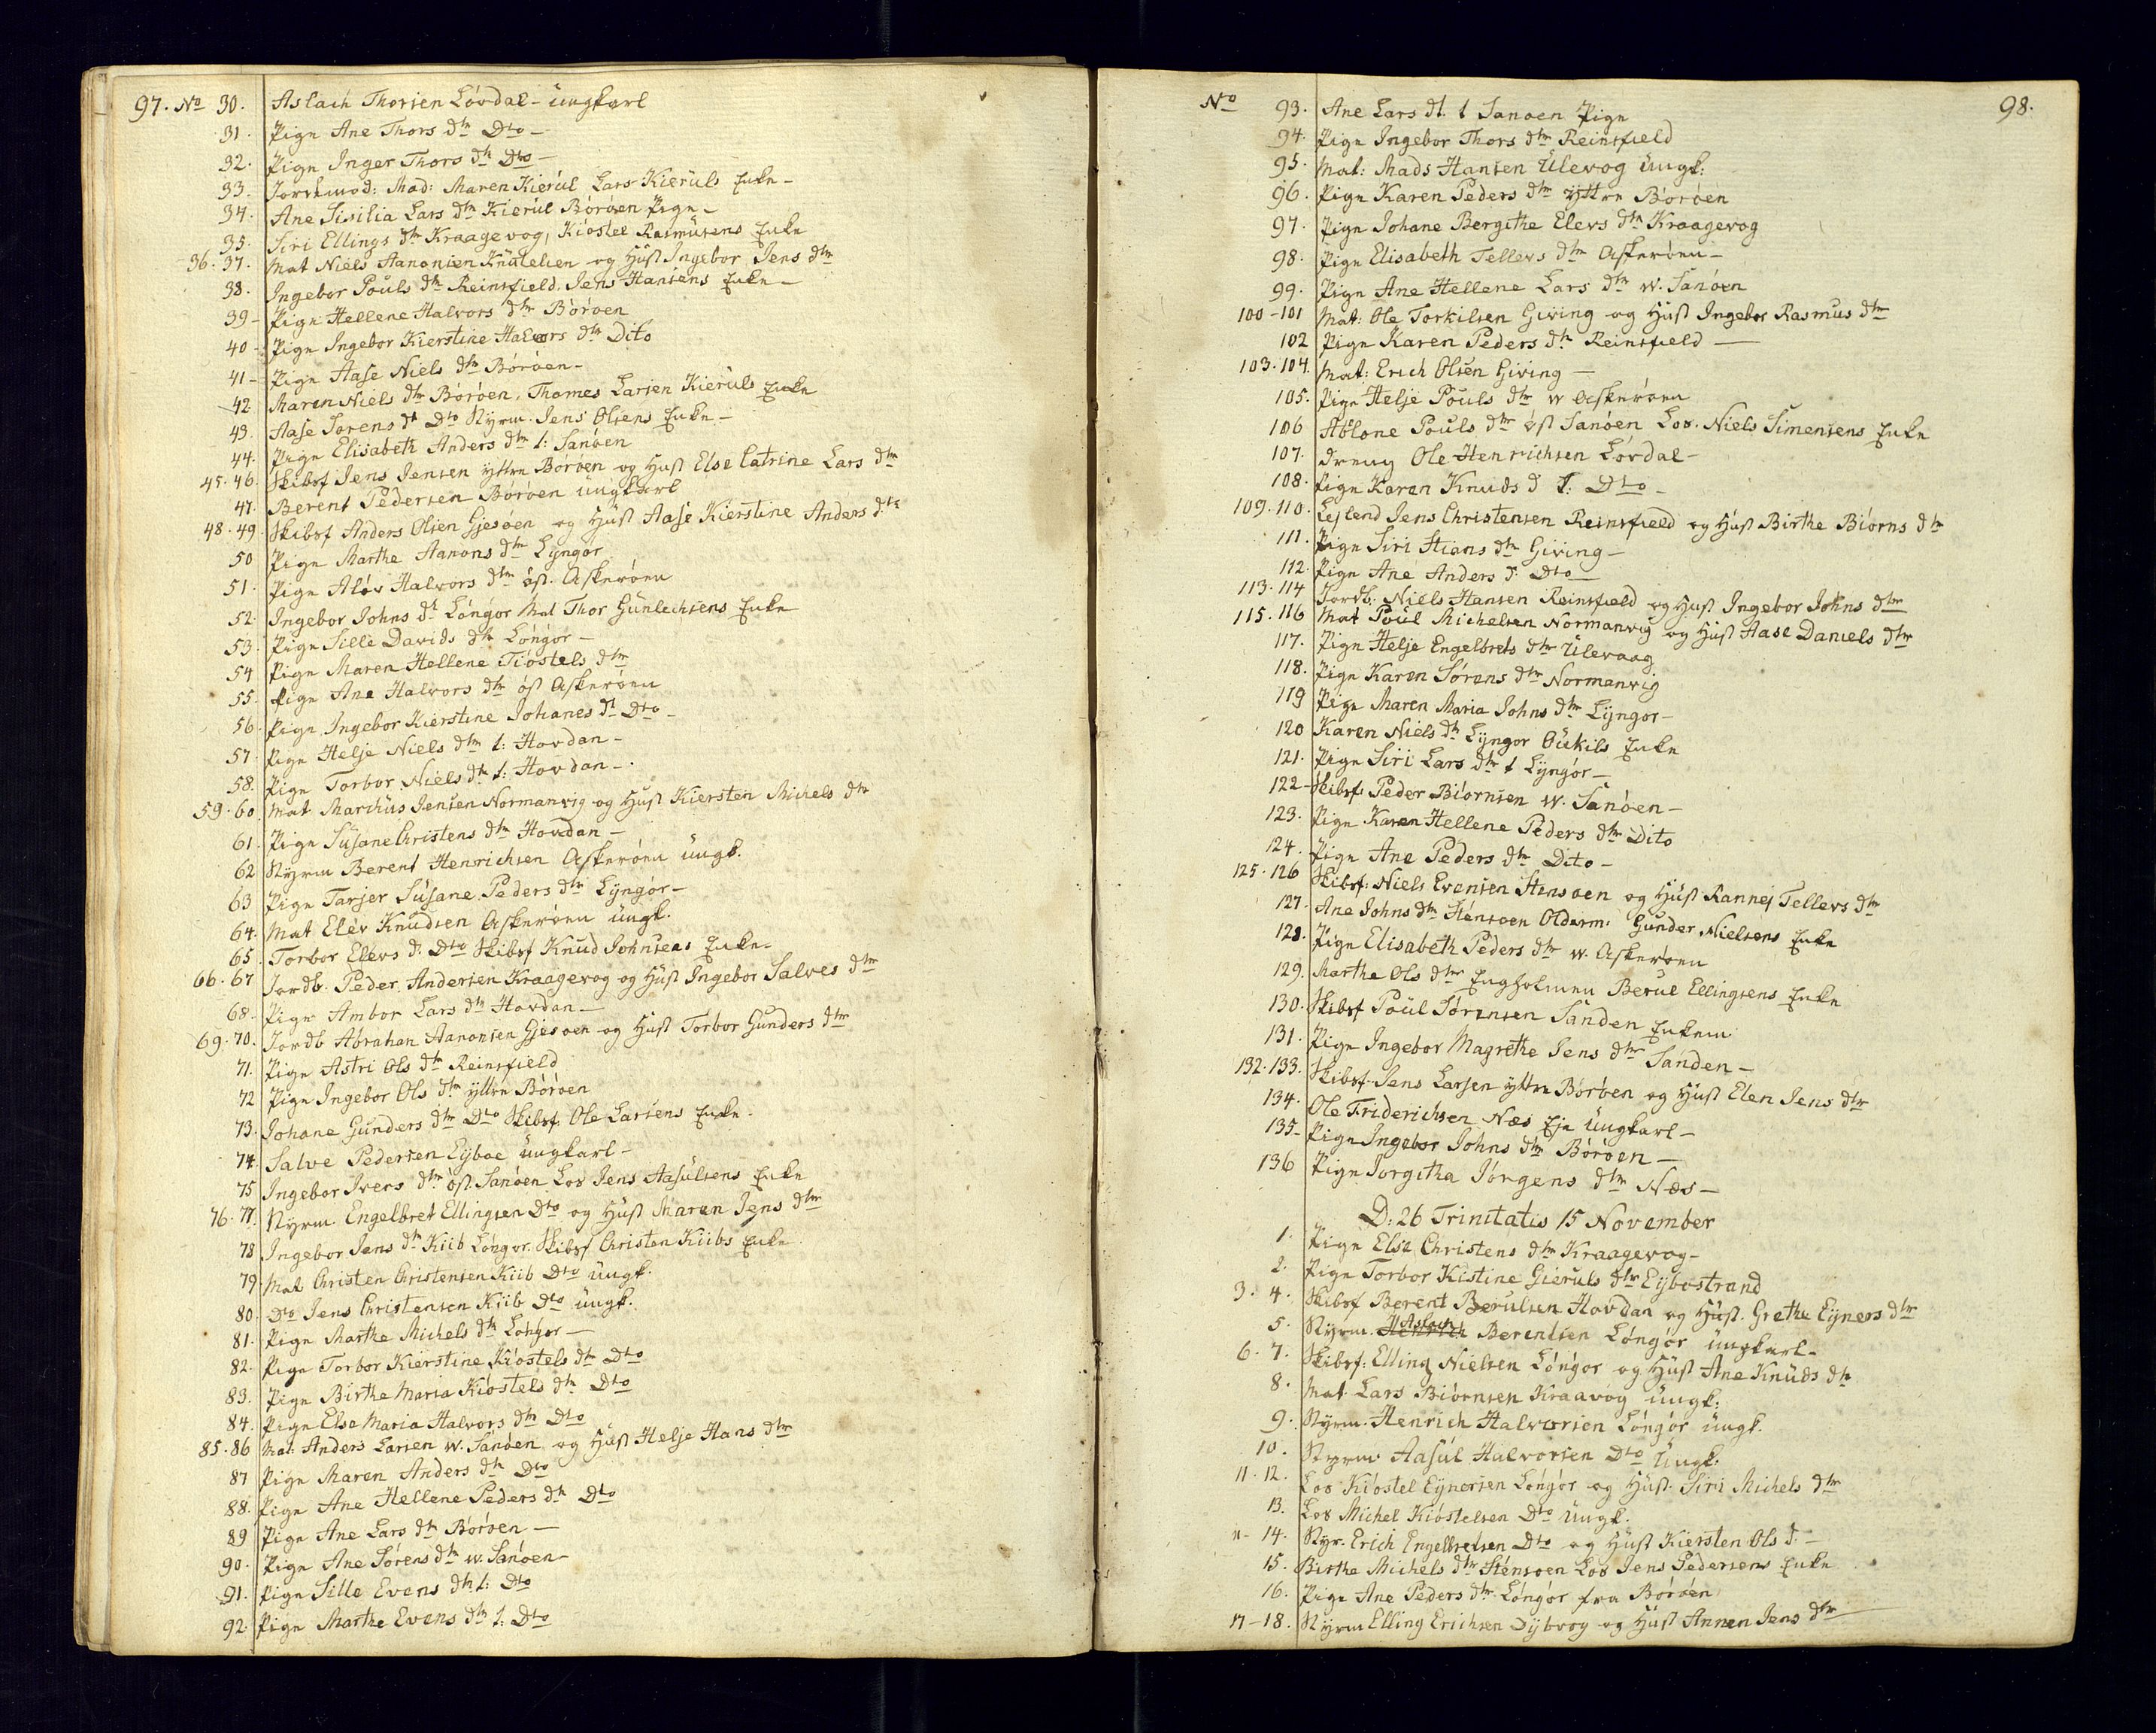 97. No 30. Aslach Thorsen Lövdal - ungkarl
31. Pige Ane Thors dtr Dto -
32. Pige Inger Thors dtr Dto -
33. Jordmod: Mad: Maren Kierul Lars Kieruls Enke -
34. Ane Sisilia Lars dtr Kierul Börøen Pige -
35. Siri Ellings dtr Kraagevog, Kiöstel Rasmusens Enke
36. 37. Mat Niels Aanonsen Knutelien og Hust Ingebor Jens dtr
38. Ingebor Pouls dtr Reinsfield, Jens Hansens Enke -
39 - Pige Hellene Halvors dtr Börøen
40 - Pige Ingebor Kierstine Halvors dtr Dito
41 - Pige Aase Niels dtr Börøen -
42. Maren Niels dtr Börøen, Thomas Larsen Kieruls Enke
43. Aase Sørens dt Dto Styrm. Jens Olsens Enke -
44. Pige Elisabeth Anders dtr l: Sanöen
45. 46. Skibsf Jens Jensen yttre Börøen og Hust Else Catrine Lars dtr
47. Berent Pedersen Börøen ungkarl
48. 49. Skibsf Anders Olsen Gjesøen og Hust Aase Kierstine Anders dtr
50 Pige Marthe Aanons dtr Lyngor
51. Pige Aløv Halvors dtr øst. Askerøen
52. Ingebor Johns dt Löngor Mat Thor Gunlechsens Enke
53. Pige Sille Davids dtr Löngor -
54 Pige Maren Hellene Tiöstels dtr
55. Pige Ane Halvors dtr öst Askerøen
56. Pige Ingebor Kierstine Johanes dt Dto -
57. Pige Helje Niels dtr l: Hovdan -
58. Pige Torbor Niels dtr l: Hovdan -.
59. 60. Mat Marchus Jensen Normanvig og Hust Kiersten Michels dtr
61. Pige Susane Christens dtr Hovdan -
62 Styrm Berent Henrichsen Askerøen ungk.
63 Pige Tarjer Susane Peders dtr Lyngör -
64. Mat Elev Knudsen Askerøen ungk.
65. Torbor Elevs d. Dto Skibsf Knud Johnsens Enke -
66. 67 Jordb. Peder Andersen Kraagevog og Hust Ingebor Salves dtr
68. Pige Ambor Lars dtr Hovdan -
69. 70. Jordb Abrahan Aanonsen Gjesøen og Hust Torbor Gunders dtr
71. Pige Astri Ols dtr Reinsfield
72 Pige Ingebor Ols dtr yttre Börøen
73. Johane Gunders dtr Dto Skibsf. Ole Larsens Enke -
74. Salve Pedersen Eyboe ungkarl -
75 Ingebor Ivers dtr öst. Sanöen Los Jens Aasulsens Enke
76. 77. Styrm. Engelbret Ellingsen Dto og Hust Maren Jens dtr
78 Ingebor Jens dtr Kiib Löngor. Skibsf Christen Kiibs Enke.
79. Mat Christen Christensen Kiib Dto ungk.
80. Dto Jens Christensen Kiib Dto ungk.
81. Pige Marthe Michels dtr Löngor -
82. Pige Torbor Kierstine Kiöstels dtr Dto
83. Pige Birthe Maria Kiöstels dtr Dto
84. Pige Else Maria Halvors dtr Dto
85. 86 Mat. Anders Larsen w. Sanöen og Hust Helje Hans dtr
87 Pige Maren Anders dtr Dto
88. Pige Ane Hellene Peders dtr Dto
89 Pige Ane Lars dtr Börøen -
90. Pige Ane Sörens dtr w. Sanöen -
91. Pige Sille Evens dtr l: Dto
92. Pige Marthe Evens dtr l: Dto
98.
No 93. Ane Lars dt. l Sanøen Pige
94. Pige Ingebor Thors dtr Reinsfield
95. Mat: Mads Hansen Ulevog ungk:
96. Pige Karen Peders dtr yttre Börøen
97. Pige Johane Bergithe Elevs dtr Kraagevog
98. Pige Elisabeth Tellevs dtr Askerøen -
99. Pige Ane Hellene Lars dtr w. Sanöen
100 - 101 Mat: Ole Torkilsen Giving og Hust Ingebor Rasmus dtr
102 Pige Karen Peders dtr Reinsfield -
103. 104. Mat: Erich Olsen Giving -
105. Pige Helje Pouls dtr w Askerøen
106 Ablone Pouls dtr öst Sanöen Los. Niels Simensens Enke
107. Dreng Ole Henrichsen Lövdal -
108. Pige Karen Knuds d l: Dto -
109. 110. Lejlend Jens Christensen Reinsfield og Hust Birthe Biörns dtr
111. Pige Siri Stians dtr Giving -
112. Pige Ane Anders d. Dto
113. 114 Jordb: Niels Hansen Reinsfield og Hust Ingebor Johns dtr
115. 116 Mat Poul Michelsen Normanvig og Hust Aase Daniels dtr
117. Pige Helje Engelbrets dtr Ulevaag
118. Pige Karen Sørens dtr Normanvig
119 Pige Maren Maria Johns dtr Lyngor -
120 Karen Niels dtr Lyngor Öukils Enke
121. Pige Siri Lars dtr l Lyngör -
122 - Skibsf: Peder Biörnsen w. Sanöen -
123. Pige Karen Hellene Peders dtr Dito
124. Pige Ane Peders dtr Dito -
125. 126 Skibsf: Niels Evensen Stensøen og Hust Rannej Tellevs dtr
127. Ane Johns dtr Stensøen Olderm: Gunder Nielsens Enke
128. Pige Elisabeth Peders dtr w. Askerøen
129. Marthe Ols dtr Engholmen Berul Ellingsens Enke
130. Skibsf Poul Sørensen Sanden Enkem
131. Pige Ingebor Magrethe Jens dtr Sanden -
132. 133. Skibsf. Jens Larsen yttre Börøen og Hust Elen Jens dtr
134. Ole Friderichsen Næs Eje ungkarl -
135 - Pige Ingebor Johns dtr Börøen -
136 Pige Jorgitha Jörgens dtr Næs -
D: 26 Trinitatis 15 November
1. Pige Else Christens dtr Kraagevog -
2. Pige Torbor Kistine Gieruls dtr Eybostrand
3. 4. Skibsf Berent Berulsen Hovdan og Hust. Grethe Eyners dtr
5. Styrm. Aslach Berentsen Löngör ungkarl -
6. 7. Skibsf: Elling Nielsen Löngor og Hust Ane Knuds dtr
8. Mat Lars Biörnsen Kraavog ungk:
9. Styrm. Henrich Halvorsen Löngör ungk.
10. Styrm Aasul Halvorsen Dto Ungk:
11. 12. Los Kiöstel Eynersen Löngör og Hust Siri Michels dtr
13. Los Michel Kiöstelsen Dto Ungk.
14. Styr. Erich Engelbretsen Dto og Hust Kiersten Ols d. -
15. Birthe Michels dtr Stensøen Los Jens Pedersens Enke
16. Pige Ane Peders dtr Löngör fra Börøen
17 - 18. Styrm Elling Erichsen Dybvog og Hust Annen Jens dtr